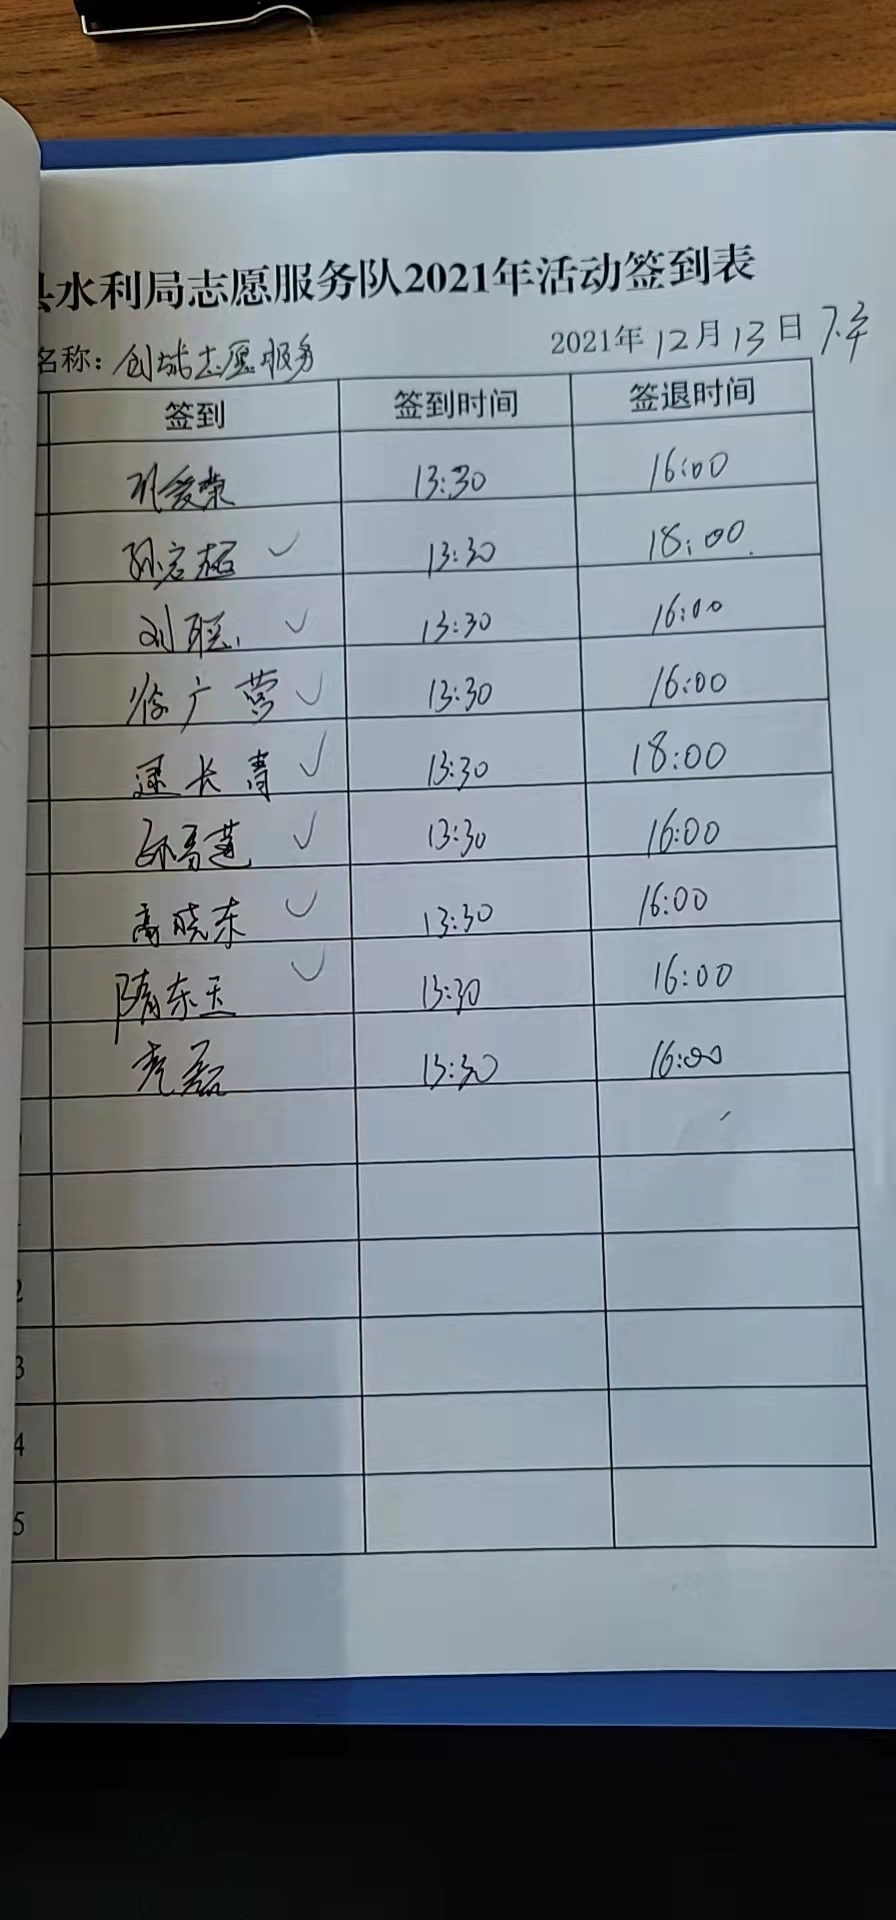 县水利局志愿服务队2021年活动签到表
名称：创城志愿服务 2021年12月13日下午
签到 签到时间 签退时间
孔爱荣 13:30 16:00
孙 13:30 18:00
刘聪 13:30 16:00
徐广营 13:30 16:00
逯长青 13:30 18:00
13:30 16:00
高晓东 13:30 16:00
隋东玉 13:30 16:00
亮磊 13:30 16:00
2
3
4
5